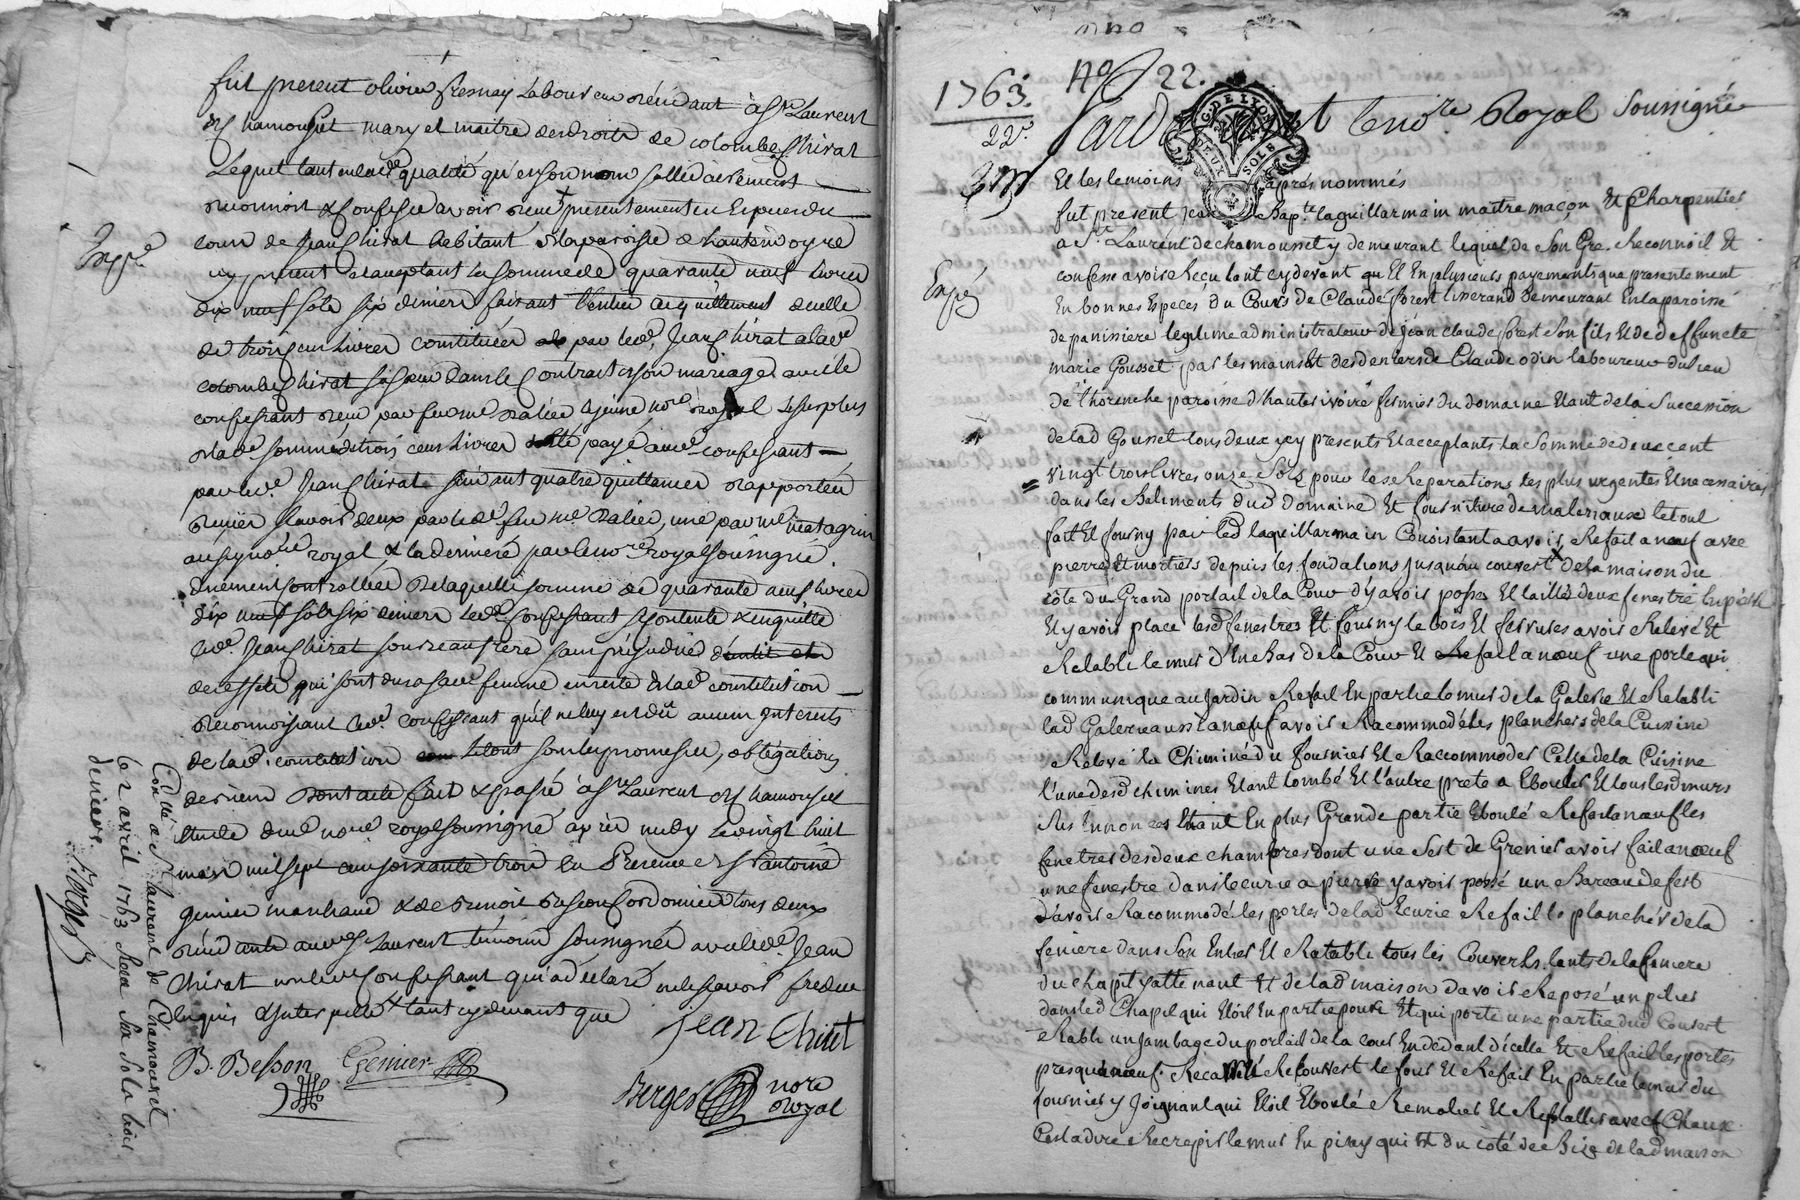 fut present olivier fresnay Laboureur résidant à St Laurent
de Chamousset mary et maitre des droits de colombe Chirat
Lequel tant en lad. qualité qu'en son nom sollidairement
reconnoit & confesse avoir reçu presentement en Especes du
cours de Jean Chirat habitant de la paroisse de hauterivoyre
icy present & acceptant la somme de quarante neuf livres
dix neuf sols six deniers faisant l'entier acquittement de celle
de trois cens livres constituées par led. Jean Chirat a lad.
colombe Chirat sa sœur dans le Contrat de son mariage avec le
confessant reçu par feu me Dalier notre royal Le surplus
de lad. somme de trois cens livres payé aud. confessant
par led. Jean Chirat suivant quatre quittances rapportées
sçavoir deux par led. feu me Dalier, une par me
aussy notre royal & la derniere par le no.re royal soussigné
duement controllées de laquelle somme de quarante neuf livres
dix neuf sols six deniers led. confessant se contente & en quitte
led. Jean Chirat son beaufrere sans préjudice
des effets qui sont dus a sad. femme en reste de lad. constitution
reconnoissant led. confessant qu'il ne luy est dû aucun Interets
de lad. constitution le tout sous les promesses, obligations
fait & passé à St Laurent de Chamousset
Etude dud. no.re royal soussigné après midy le vingt huit
mars mil sept cens soixante trois En Presence de Sr antoine
Genier marchand & de Benoit Besson Cordonnier tous deux
résidants aud. St Laurent témoins soussignés avec led. Jean
Chirat non led. Confessant qui a déclaré ne le sçavoir faire de ce
Enquis & Interpellé tant cy devant que
Jean Chirat
B. Besson Genier
Berger nore
Royal
Exppé
Con.té a St Laurent de Chamousset
le 2 avril 1763 Reçu Six Sols Six
deniers. Berger
1763.
No 22.
22r.
G. DE LYON
DEUX SOLS
Pardevant le no.re Royal Soussigné
Et les temoins après nommés
fut present jean Bap.te laguillarmain maitre maçon Et Charpentier
a St Laurent de chamousset y demeurant lequel de Son Gré Reconnoit Et
confesse avoir Reçu tant cydevant qu'El En plusieurs payements que presentement
En bonnes Especes du Cours de Claude forest tisserand demeurant En la paroisse
de panissiere legitime administrateur de jean claude forest Son fils Et de deffuncte
marie Gousset par les mains Et des deniers de Claude odin laboureur du lieu
de thorenche paroisse d'hauterivoire fermier du domaine Etant de la Succession
de lad Gousset tous deux icy presents Et acceptants la Somme de deux cent
vingt trois livres onze Sols pour les Reparations les plus urgentes Et necessaires
dans les Batiments dud Domaine Et fourniture de materiaux le tout
fait Et fourny par led laguillarmain Consistant a avoir Refait a neuf avec
pierres Et mortiers depuis les fondations jusqu'au couvert de la maison du
côté du Grand portail de la Cour d'y avoir posse Et taillés deux fenestre
Et y avoir place lesd fenestres Et fourny le bois Et ferrures avoir Relevé Et
Retabli le mur d'En Bas de la Cour Et Refait a nœuf une porte qui
communique au Jardin Refait En partie le mur de la Galerie Et Retabli
lad Galerie aussi a nœuf avoir Racommodé les planchers de la Cuisine
Relevé la Chiminé du fournier Et Raccommoder Celle de la Cuisine
l'une desd chimines Etant tombé Et l'autre prete a Ebouler Et tous lesd murs
sus Ennoncés Etant En plus Grande partie Eboulé Refait a nœuf les
fenetres des deux chambres dont une Sert de Grenier avoir fait a nœuf
une fenestre dans l'Ecurie a pierre y avoir possé un Bareau de fert
d'avoir Racommodé les portes de lad Ecurie Refait le plancher de la
feniere dans Son Entier Et Retabli tous les Couverts tants de la feniere
du chapit yattenant Et de lad maison d'avoir Reposé un pilier
dans led Chapit qui Etoit En partie pouri Et qui porte une partie dud Couvert
Rabli un jambage du portail de la cour En dedant d'icelle Et Refait les portes
presqu'a nœuf. Recouvert le four Et Refait En partie le mur du
fournier y Joignant qui Etoit Eboulé Remolier Et avec Chaux
C'est a dire Recrepis le mur En pizay qui Et du coté de Bize de lad maison
Expé